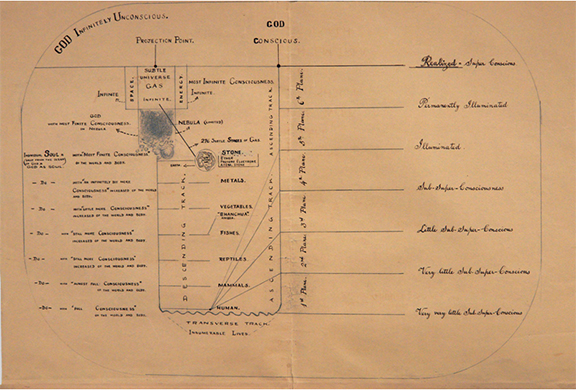 GOD INFINITELY UNCONSCIOUS.
GOD
CONSCIOUS.
PROJECTION POINT.
SUBTLE
UNIVERSE
GAS
INFINITE.
SPACE.
ENERGY
INFINITE
MOST INFINITE CONSCIOUSNESS.
INFINITE.
GOD
WITH MOST FINITE CONSCIOUSNESS
NEBULA
2ND SUBTLE SERIES OF GAS
STONE.
INDIVIDUAL SOUL
WITH "MOST FINITE CONSCIOUSNESS"
OF THE WORLD AND BODY.
- DO -
CONSCIOUSNESS" INCREASED OF THE WORLD
AND BODY.
METALS.
- DO -
WITH "LITTLE MORE CONSCIOUSNESS"
INCREASED OF THE WORLD AND BODY.
VEGETABLES.
- DO -
WITH "STILL MORE CONSCIOUSNESS"
INCREASED OF THE WORLD AND BODY.
FISHES.
- DO -
WITH "STILL MORE CONSCIOUSNESS"
INCREASED OF THE WORLD AND BODY.
REPTILES.
- DO -
WITH "ALMOST FULL CONSCIOUSNESS"
OF THE WORLD AND BODY.
MAMMALS.
- DO -
WITH "FULL CONSCIOUSNESS"
OF THE WORLD AND BODY.
HUMAN.
DESCENDING TRACK.
ASCENDING TRACK
ASCENDING TRACK.
TRANSVERSE TRACK.
INNUMERABLE LIVES.
1st Plane.
2nd Plane.
3rd Plane.
4th Plane.
5th Plane.
6th Plane.
Realized - Super Conscious
Permanently Illuminated
Illuminated
Sub-Super-Consciousness
Little Sub-Super-Conscious
Very little Sub-Super-Conscious
Very very little Sub-Super-Conscious